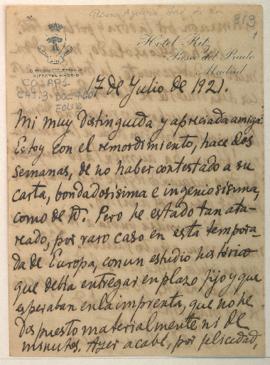 813
Hotel Ritz
Plaza del Prado
Madrid
17 de Julio de 1921.
Mi muy distinguida y apreciada amiga:
Estoy con el remordimiento, hace dos
semanas, de no haber contestado a su
carta, bondadosísima e ingeniosísima,
como de Vd. Pero he estado tan ata-
reado, por raro caso en esta tempora-
da de Europa, con un estudio histórico
que debía entregar en plazo fijo y que
esperaban en la imprenta, que no he
dispuesto materialmente ni de
minutos. Ayer acabé, por felicidad,